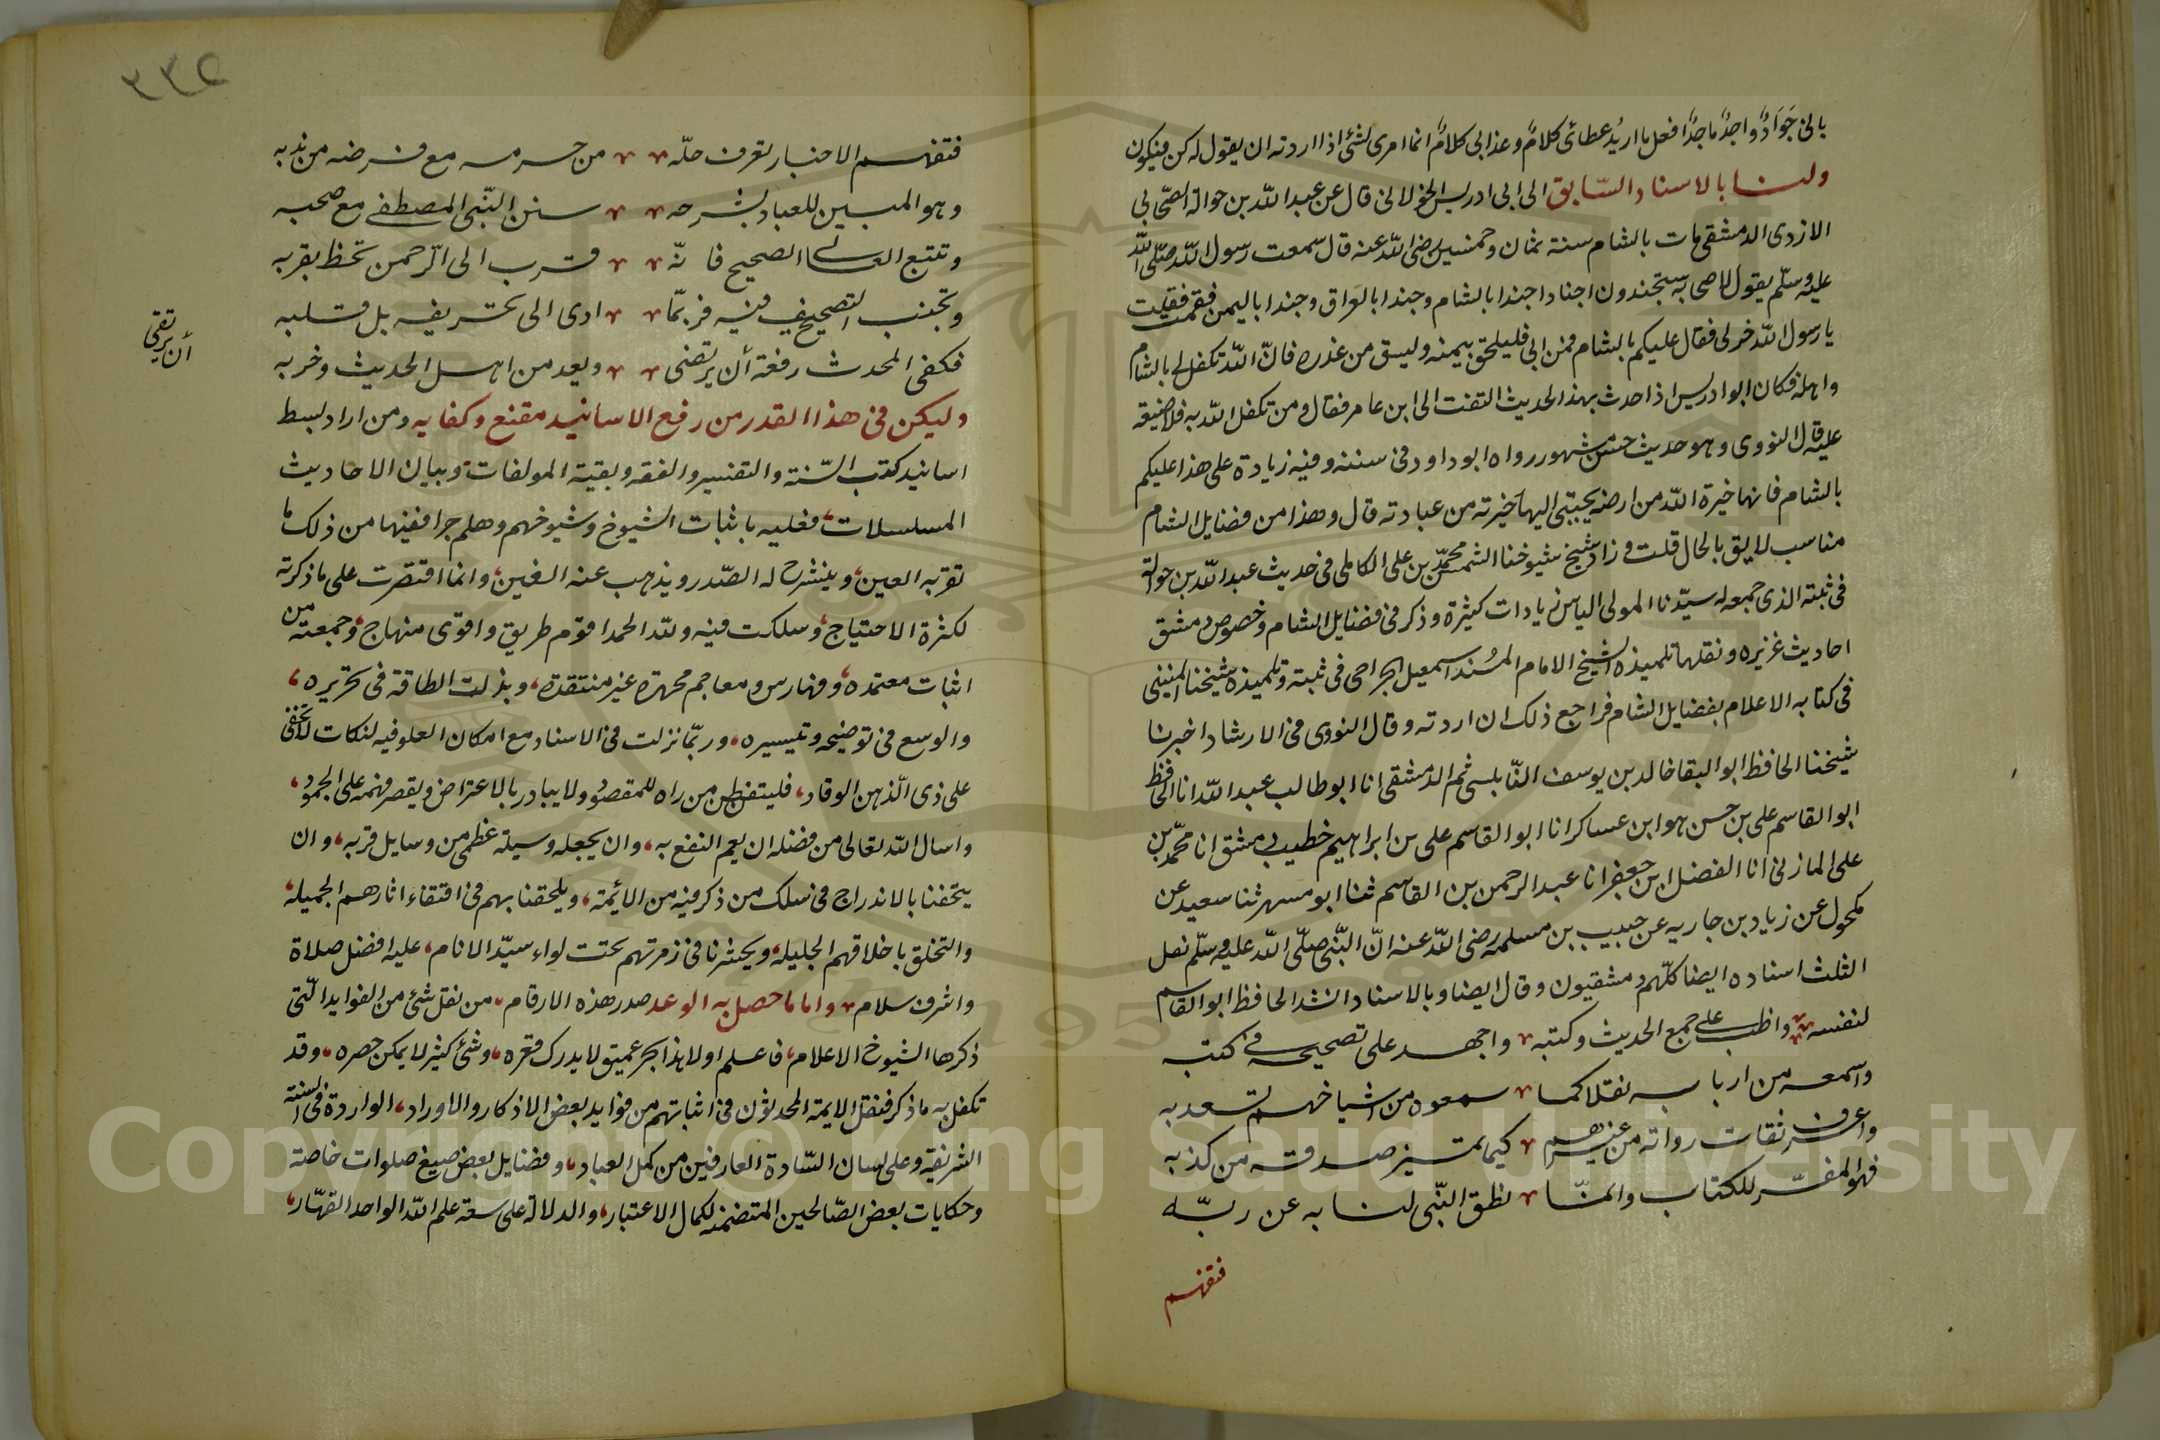 باني جَوَادٌ واجدٌ ماجدٌ افعل ما اريد عطائي كلامٌ وعذابي كلامٌ انما امري لشئ اذا اردته ان يقول له كن فيكون
ولنا بالاسناد السّابق الى ابي ادريس الخولاني قال عن عبد اللّه بن حوالة الصّحابي
الازدي الدمشقي مات بالشام سنة ثمان وخمسين رضي اللّه عنه قال سمعت رسول اللّه صلّى اللّه
عليه وسلّم يقول لاصحابه ستجندون اجنادا جندا بالشام وجندا بالعراق وجندا باليمن فقمت فقلت
يا رسول اللّه خر لي فقال عليكم بالشام فمن ابى فليلحق بيمنه وليسق من غدره فانّ اللّه تكفل لي بالشام
واهله فكان ابو ادريس اذا حدث بهذا الحديث التفت الى ابن عامر فقال ومن تكفل اللّه به فلا ضيعة
عليه قال النووي وهو حديث حسن مشهور رواه ابو داود في سننه وفيه زيادة على هذا عليكم
بالشام فانها خيرة اللّه من ارضه يجتبي اليها خيرته من عباده قال وهذا من فضايل الشام
مناسب لايق بالحال قلت وزاد شيخ شيوخنا الشمس محمّد بن علي الكاملي في حديث عبد اللّه بن حوالة
في ثبته الذي جمعه له سيّدنا المولى الياس زيادات كثيرة وذكر في فضايل الشام وخصوص دمشق
احاديث غزيره ونقلها تلميذه الشيخ الامام المُسند اسمعيل الجراحي في ثبته وتلميذه شيخنا المنيني
في كتابه الاعلام بفضايل الشام فراجع ذلك ان اردته وقال النووي في الارشاد اخبرنا
شيخنا الحافظ ابو البقا خالد بن يوسف النّابلسي ثم الدمشقي انا ابو طالب عبد اللّه انا الحافظ
ابو القاسم علي بن حسن هو ابن عساكر انا ابو القاسم علي بن ابراهيم خطيب دمشق انا محمّد بن
علي المازني انا الفضل ابن جعفر انا عبد الرحمن بن القاسم ثنا ابو مسهر ثنا سعيد عن
مكحول عن زياد بن جاريه عن حبيب بن مسلمه رضي اللّه عنه انّ النّبي صلّى اللّه عليه وسلّم نفل
الثلث اسناده ايضا كلّهم دمشقيون وقال ايضا وبالاسناد انشد الحافظ ابو القاسم
لنفسه واظب على جمع الحديث وكتبه واجهد على تصحيحه في كتبه
واسمعه من اربابه نقلا كما سمعوه من اشياخهم تسعد به
واعرف ثقات رواته من غيرهم كيما تميز صدقه من كذبه
فهو المفسّر للكتاب وانمّا نطق النّبي لنا به عن ربّه
فتفهم
فتفهم الاخبار تعرف حلّه من حرمه مع فرضه من ندبه
وهو المبين للعباد بشرحه سنن النّبي المصطفى مع صحبه
وتتبع العالي الصحيح فانّه قرب الى الرّحمن تحظ بقربه
وتجنب التصحيف فيه فربمّا ادى الى تحريفه بل قلبه
فكفى المحدث رفعة أن يرتضى ويعد من اهل الحديث وحزبه
أن يرتقي
وليكن في هذا القدر من رفع الاسانيد مقنع وكفايه ومن اراد بسط
اسانيد كتب السّنة والتفسير والفقه وبقية المولفات وبيان الاحاديث
المسلسلات، فعليه باثبات الشيوخ وشيوخهم وهلم جرا ففيها من ذلك ما
تقر به العين، وينشرح له الصّدر ويذهب عنه الغين، وانما اقتصرت على ما ذكرته
لكثرة الاحتياج، وسلكت فيه وللّه الحمد اقوم طريق واقوى منهاج، وجمعته من
اثبات معتمده، وفهارس ومعاجم محررة غير منتقدة، وبذلت الطاقة في تحريره،
والوسع في توضيحه وتيسيره، وربمّا نزلت في الاسناد مع امكان العلو فيه لنكات لا تخفى
على ذي الذّهن الوقاد، فليتفطن من راه للمقصود ولا يبادر بالاعتراض ويقصر فهمه على الجمود،
واسال اللّه تعالى من فضله ان يعم النفع به، وان يجعله وسيلة عظمى من وسايل قربه، وان
يتحفنا بالاندراج في سلك من ذكر فيه من الائمة، ويلحقنا بهم في اقتفاء اثارهم الجميله،
والتخلق باخلاقهم الجليله، ويحشرنا في زمرتهم تحت لواء سيّد الانام، عليه افضل صلاة
واشرف سلام، واما ما حصل به الوعد صدر هذه الارقام، من نقل شئ من الفوايد الّتي
ذكرها الشيوخ الاعلام، فاعلم اولا هذا بحر عميق لا يدرك قعره، وشئ كثير لا يمكن حصره، وقد
تكفل به ما ذكر فنقل الايمة المحدثون في اثباتهم من فوايد بعض الاذكار والاوراد، الواردة في السنة
الشريفة وعلى لسان السّادة العارفين من كمل العباد، وفضايل بعض صيغ صلوات خاصة
وحكايات بعض الصّالحين المتضمنه لكمال الاعتبار، والدلالة على سعة علم اللّه الواحد القهّار،
Copyright © King Saud University
1957